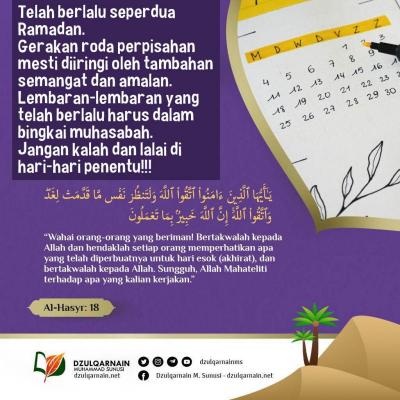 Telah berlalu seperdua
Ramadan.
Gerakan roda perpisahan
mesti diiringi oleh tambahan
semangat dan amalan.
Lembaran-lembaran yang
telah berlalu harus dalam
bingkai muhasabah.
Jangan kalah dan lalai di
hari-hari penentu!!!
M D W D V Z Z
1 2 3
4 5 6 7 8 9 10
11 12 13 14 15 16 17
18 19 20 21 22 23 24
25 26 27 28 29 30
يَـٰٓأَيُّهَا ٱلَّذِينَ ءَامَنُوا۟ ٱتَّقُوا۟ ٱللَّهَ وَلْتَنظُرْ نَفْسٌ مَّا قَدَّمَتْ لِغَدٍ
وَٱتَّقُوا۟ ٱللَّهَ إِنَّ ٱللَّهَ خَبِيرٌۢ بِمَا تَعْمَلُونَ
“Wahai orang-orang yang beriman! Bertakwalah kepada
Allah dan hendaklah setiap orang memperhatikan apa
yang telah diperbuatnya untuk hari esok (akhirat), dan
bertakwalah kepada Allah. Sungguh, Allah Mahateliti
terhadap apa yang kalian kerjakan.”
Al-Hasyr: 18
DZULQARNAIN
MUHAMMAD SUNUSI
dzulqarnain.net
dzulqarnainms
Dzulqarnain M. Sunusi - dzulqarnain.net